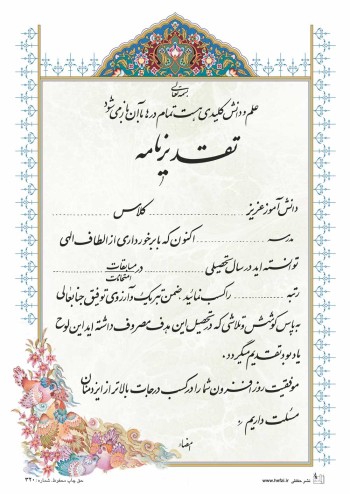 بسمه تعالی
علم و دانش کلیدی هست تمام درها با آن باز می شود
تقدیرنامه
دانش آموز عزیز .................... کلاس ....................
مدرسه .................... اکنون که با برخورداری از الطاف الهی
توانسته اید در سال تحصیلی .................... در مسابقات
امتحانات
رتبه .......... را کسب نمائید. ضمن تبریک و آرزوی توفیق جنابعالی
به پاس کوشش و تلاشی که در تحصیل این هدف مصروف داشته اید این لوح
یادبود تقدیم میگردد.
موفقیت روز افزون شما را در کسب درجات بالاتر از ایزد منان
مسئلت داریم
امضاء
حق چاپ محفوظ. شماره: ۳۲۰
www.hefzi.ir نشر حفظی